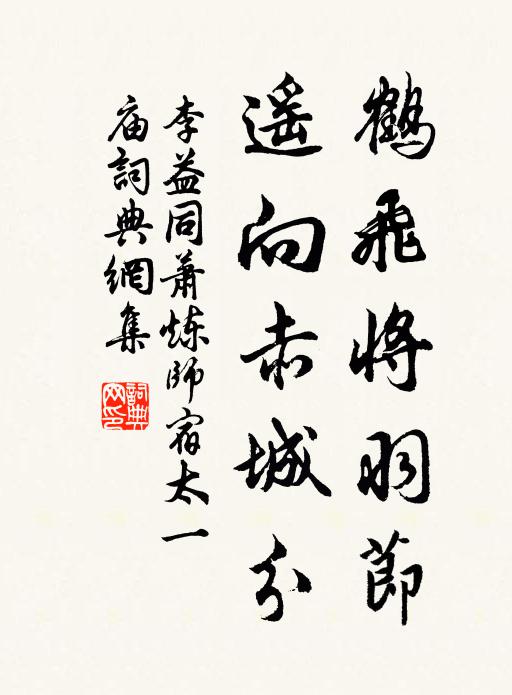 鶴飛將羽節
遥向赤城分
李益同蕭炼師宿太一
庙詞典網集
詞典網印